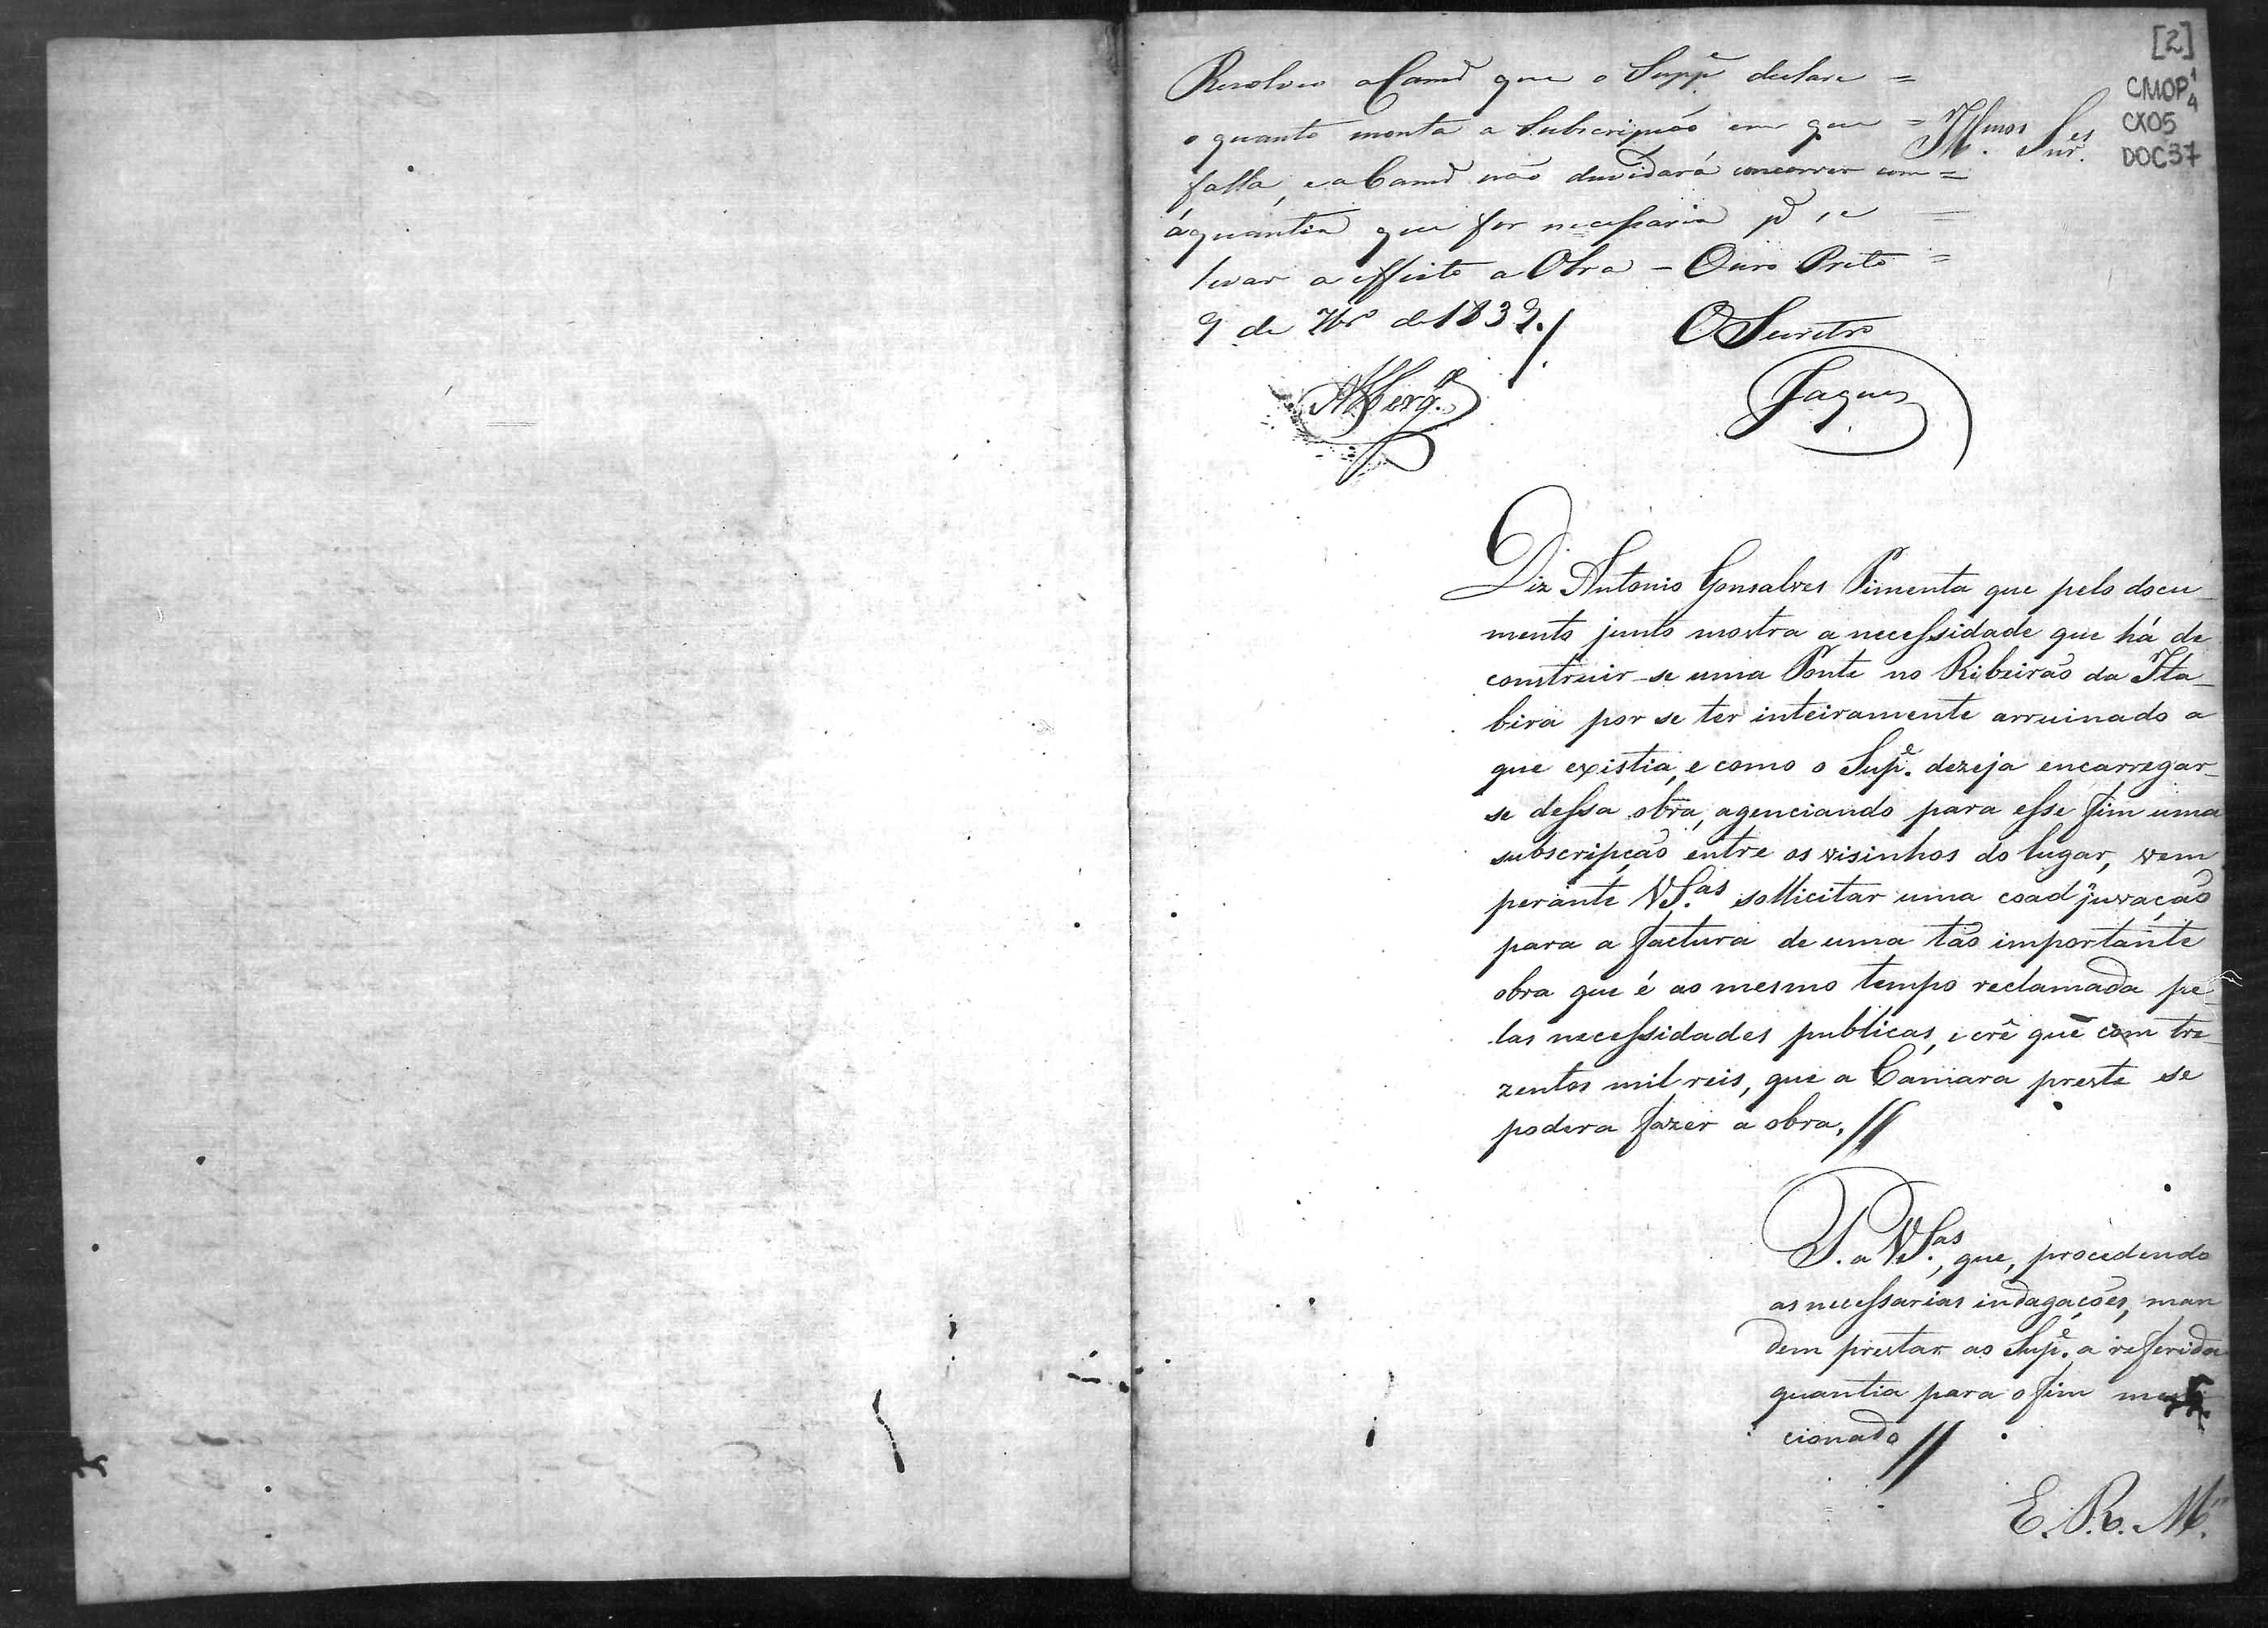 [2]
CMOP 1/4
CX05
DOC 37
Resolveo a Camª que o Suppᵉ declare =
o quanto monta a Subscripção em que =
falla, e a Camª não duvidará concorrer com =
a quantia que for necessaria pª se =
levar a effeito a Obra - Ouro Preto =
9 de 7brº de 1839./
O Secretrº
Alberg.ᵉ
Illmos. Snr.es
Diz Antonio Gonsalves Pimenta que pelo docu_
mento junto mostra a necessidade que há de
construir-se uma Ponte no Ribeirão da Ita_
bira por se ter inteiramente arruinado a
que existia, e como o Sup.ᵉ dezeja encarregar_
se dessa obra, agenciando para esse fim uma
subscripção entre os visinhos do lugar, vem
perante VS.as sollicitar uma coadjuvação
para a factura de uma tão importante
obra que é ao mesmo tempo reclamada pe_
las necessidades publicas, e crê que com tre_
zentos mil reis, que a Camara preste se
podera fazer a obra.//
P. a VS.as, que, procedendo
as necessarias indagações, man
dem prestar ao Sup.ᵉ a referida
quantia para o fim men
cionado//
E. R. M.ce